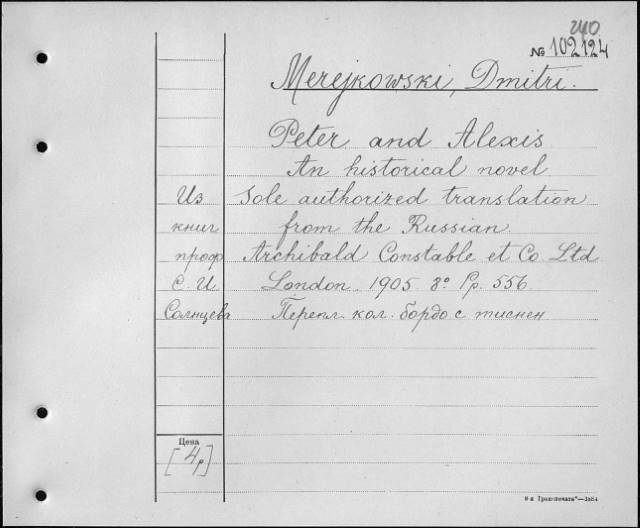 240
№ 102124
Merejkowski, Dmitri.
Peter and Alexis
An historical novel
Из
Sole authorized translation
книг
from the Russian.
проф
Archibald Constable et Co Ltd
С. И
London. 1905. 8° Pp. 556.
Солнцева
Перепл. кол. бордо с тиснен
Цена
[4р]